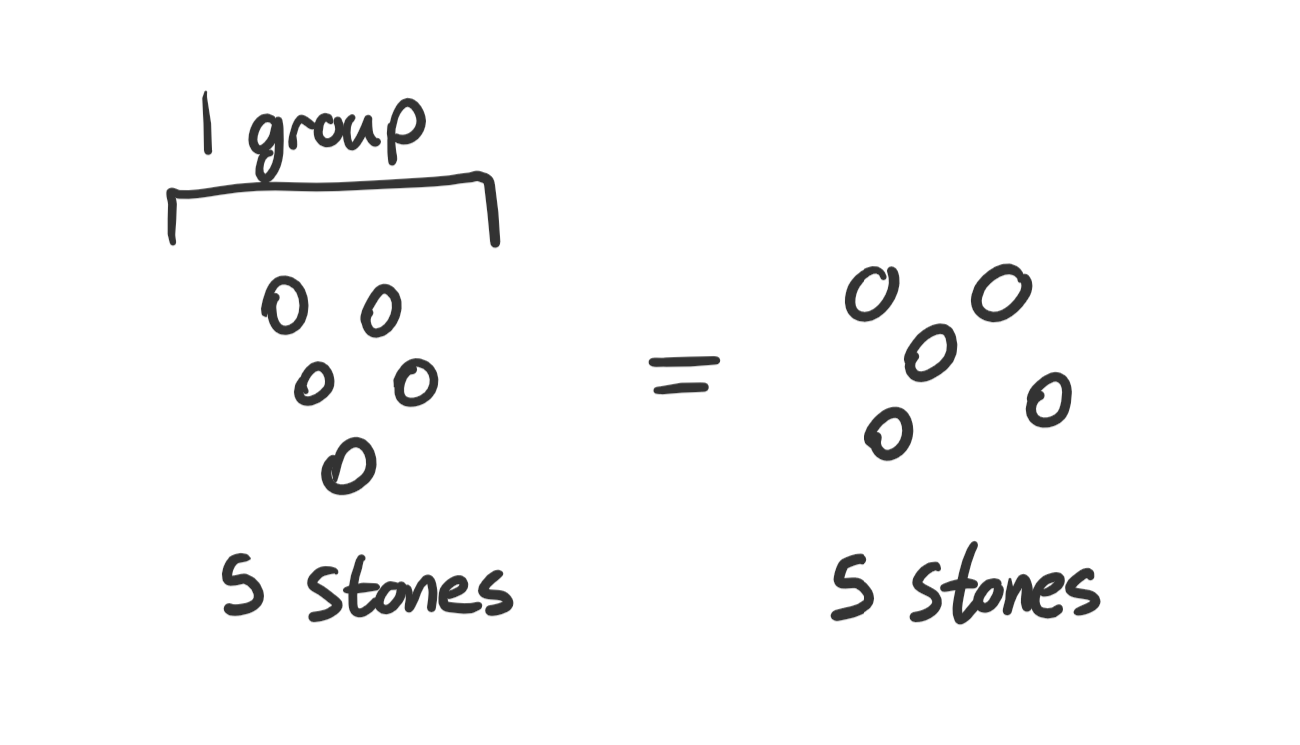 1 group
=
5 stones
5 stones